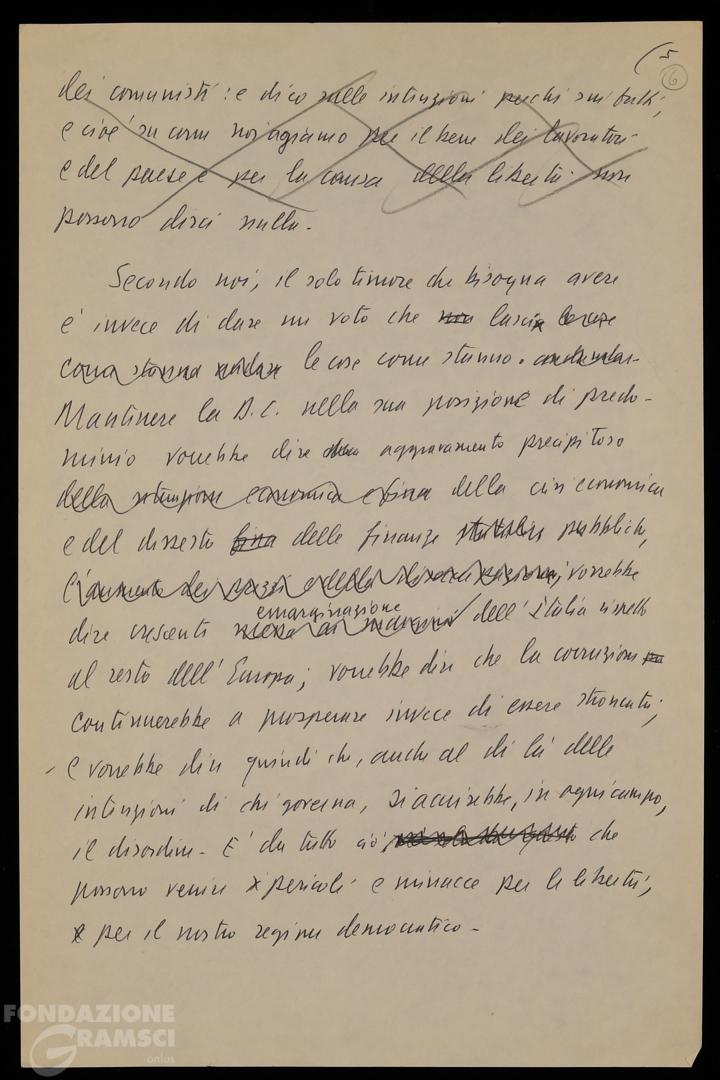 (5
6
dei comunisti: e dico sulle intenzioni perché sui fatti,
e cioè su come noi agiamo per il bene dei lavoratori
e del paese e per la causa della libertà non
possono dirci nulla.
Secondo noi, il solo timore che bisogna avere
è invece di dare un voto che non lasci le cose
come stanno le cose come stanno.
Mantenere la D.C. nella sua posizione di predo-
minio vorrebbe dire aggravamento precipitoso
della situazione economica della crisi economica
e del dissesto delle finanze pubbliche,
l'aumento dei prezzi e della vorrebbe
emarginazione
dire crescente messa ai margini dell'Italia rispetto
al resto dell'Europa; vorrebbe dire che la corruzione
continuerebbe a prosperare invece di essere stroncata;
e vorrebbe dire quindi che, anche al di là delle
intenzioni di chi governa, si acuirebbe, in ogni campo,
il disordine. E' da tutto ciò che
possono venire pericoli e minacce per le libertà,
per il nostro regime democratico.
FONDAZIONE
GRAMSCI
onlus